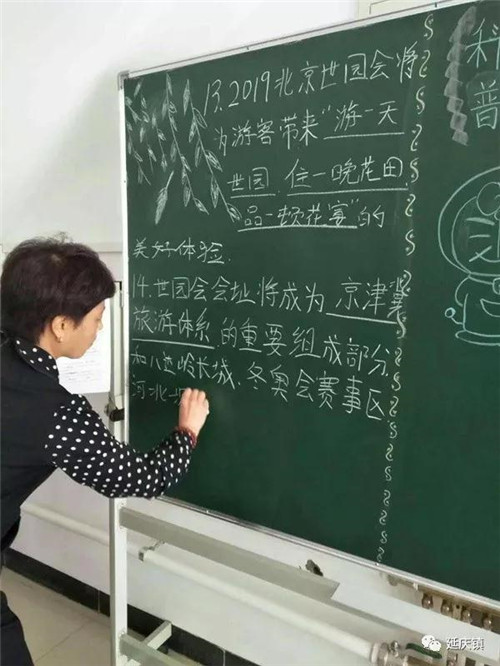 13.2019北京世园会将
为游客带来"游一天
世园.住一晚花田.
品一顿花宴"的
美好体验.
14.世园会会址将成为京津冀
旅游体系的重要组成部分.
和八达岭长城.冬奥会赛事区
河北
科
普
延庆镇